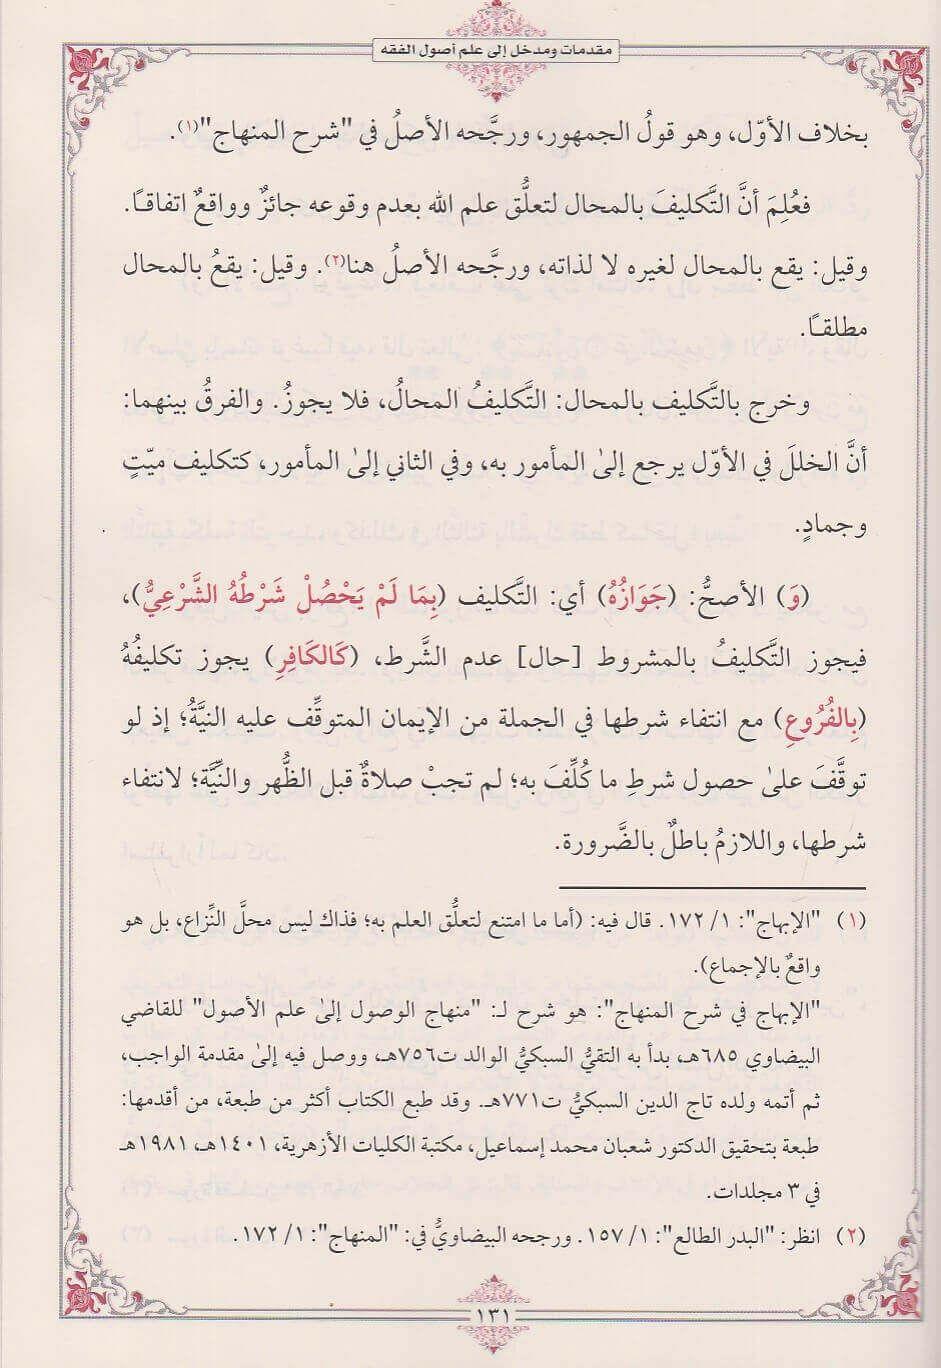 مقدمات ومدخل إلى علم أصول الفقه
بخلاف الأوّل، وهو قولُ الجمهور، ورجَّحه الأصلُ في "شرح المنهاج"(١).
فعُلِمَ أنَّ التَّكليفَ بالمحال لتعلُّق علم الله بعدم وقوعه جائزٌ وواقعٌ اتفاقًا.
وقيل: يقع بالمحال لغيره لا لذاته، ورجَّحه الأصلُ هنا(٢). وقيل: يقعُ بالمحال
مطلقًا.
وخرج بالتَّكليف بالمحال: التَّكليفُ المحالُ، فلا يجوزُ. والفرقُ بينهما:
أنَّ الخللَ في الأوّل يرجع إلىٰ المأمور به، وفي الثاني إلىٰ المأمور، كتكليف ميّتٍ
وجمادٍ.
(وَ) الأصحُّ: (جَوَازُهُ) أي: التَّكليف (بِمَا لَمْ يَحْصُلْ شَرْطُهُ الشَّرْعِيُّ)،
فيجوز التَّكليفُ بالمشروط [حال] عدم الشَّرط، (كَالكَافِرِ) يجوز تكليفُهُ
(بِالفُرُوعِ) مع انتفاء شرطها في الجملة من الإيمان المتوقِّف عليه النيَّةُ؛ إذ لو
توقَّفَ علىٰ حصول شرطِ ما كُلِّفَ به؛ لم تجبْ صلاةٌ قبل الظُّهر والنِّيَّة؛ لانتفاء
شرطها، واللازمُ باطلٌ بالضَّرورة.
(١) "الإبهاج": ١/ ١٧٢. قال فيه: (أما ما امتنع لتعلُّق العلم به؛ فذاك ليس محلَّ النِّزاع، بل هو
واقعٌ بالإجماع).
"الإبهاج في شرح المنهاج": هو شرح لـ: "منهاج الوصول إلىٰ علم الأصول" للقاضي
البيضاوي ٦٨٥هـ، بدأ به التقيُّ السبكيُّ الوالد ت٧٥٦هـ، ووصل فيه إلىٰ مقدمة الواجب،
ثم أتمه ولده تاج الدين السبكيُّ ت٧٧١هـ. وقد طبع الكتاب أكثر من طبعة، من أقدمها:
طبعة بتحقيق الدكتور شعبان محمد إسماعيل، مكتبة الكليات الأزهرية، ١٤٠١هـ، ١٩٨١هـ
في ٣ مجلدات.
(٢) انظر: "البدر الطالع": ١/ ١٥٧. ورجحه البيضاويُّ في: "المنهاج": ١/ ١٧٢.
١٣١